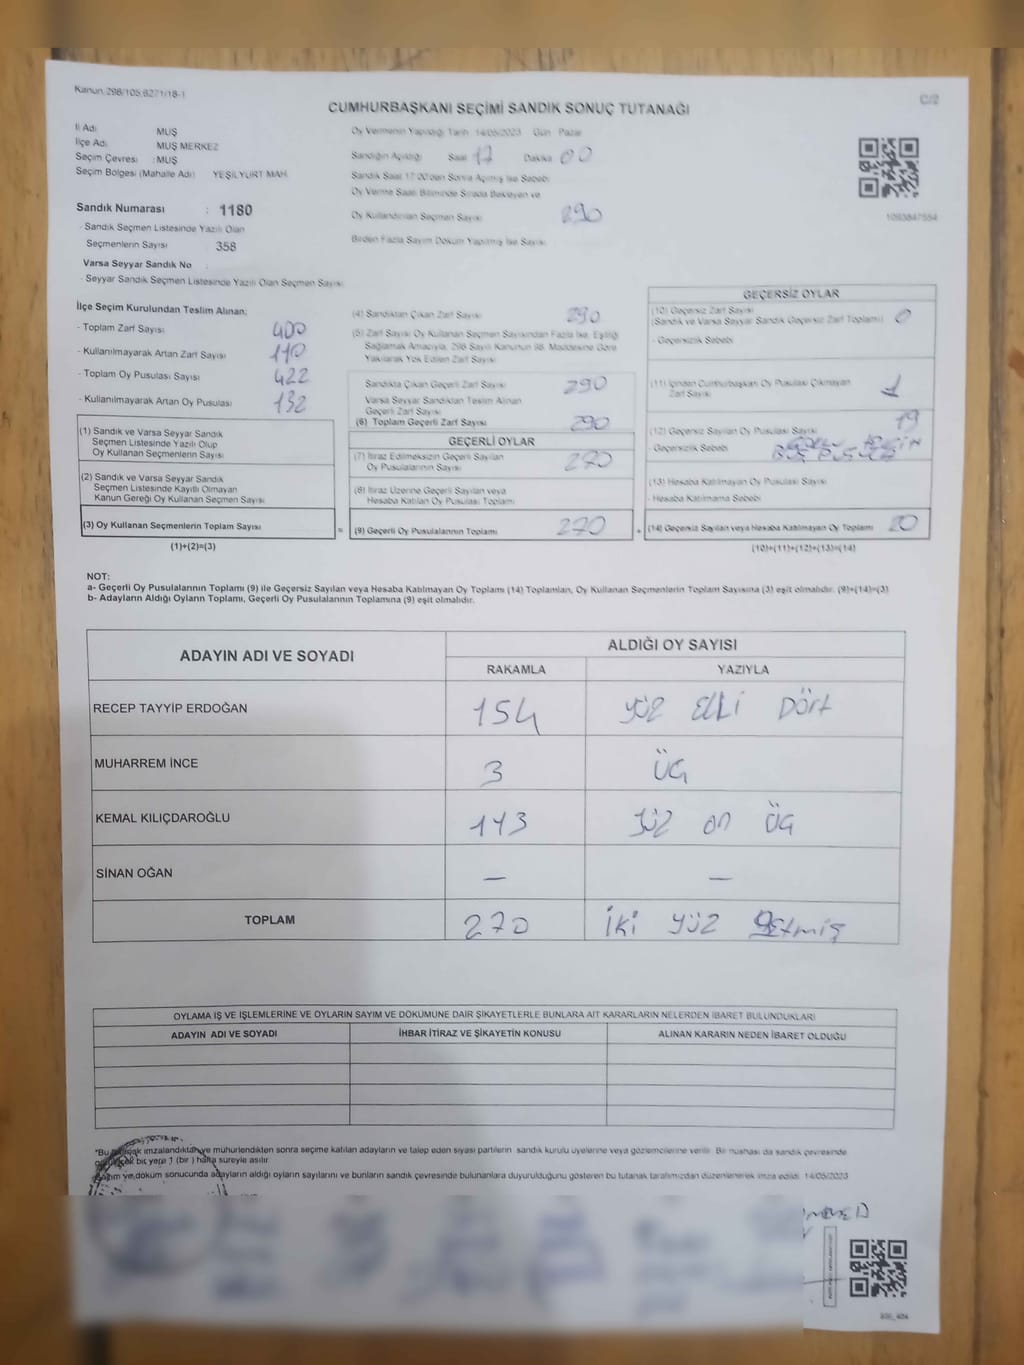 Kanun.298/105,6271/18-1
C/2
CUMHURBAŞKANI SEÇİMİ SANDIK SONUÇ TUTANAĞI
İl Adı MUŞ
İlçe Adı MUŞ MERKEZ
Seçim Çevresi : MUŞ
Seçim Bölgesi (Mahalle Adı) YEŞİLYURT MAH.
Sandık Numarası : 1180
- Sandık Seçmen Listesinde Yazılı Olan
Seçmenlerin Sayısı 358
Varsa Seyyar Sandık No :
- Seyyar Sandık Seçmen Listesinde Yazılı Olan Seçmen Sayısı:
Oy Vermenin Yapıldığı Tarih 14/05/2023 Gün Pazar
Sandığın Açıldığı Saat 17 Dakika 00
Sandık Saat 17:00'den Sonra Açılmış İse Sebebi
Oy Verme Saati Bitiminde Sırada Bekleyen ve
Oy Kullandırılan Seçmen Sayısı 290
Birden Fazla Sayım Döküm Yapılmış İse Sayısı
1093847554
İlçe Seçim Kurulundan Teslim Alınan:
- Toplam Zarf Sayısı 400
- Kullanılmayarak Artan Zarf Sayısı 110
- Toplam Oy Pusulası Sayısı 422
- Kullanılmayarak Artan Oy Pusulası 132
(1) Sandık ve Varsa Seyyar Sandık
Seçmen Listesinde Yazılı Olup
Oy Kullanan Seçmenlerin Sayısı
(2) Sandık ve Varsa Seyyar Sandık
Seçmen Listesinde Kayıtlı Olmayan
Kanun Gereği Oy Kullanan Seçmen Sayısı
(3) Oy Kullanan Seçmenlerin Toplam Sayısı
=
(1)+(2)=(3)
(4) Sandıktan Çıkan Zarf Sayısı 290
(5) Zarf Sayısı Oy Kullanan Seçmen Sayısından Fazla İse, Eşitliği
Sağlamak Amacıyla, 298 Sayılı Kanunun 98. Maddesine Göre
Yakılarak Yok Edilen Zarf Sayısı
Sandıkta Çıkan Geçerli Zarf Sayısı 290
Varsa Seyyar Sandıktan Teslim Alınan
Geçerli Zarf Sayısı
(6) Toplam Geçerli Zarf Sayısı 290
GEÇERLİ OYLAR
(7) İtiraz Edilmeksizin Geçerli Sayılan
Oy Pusulalarının Sayısı 270
(8) İtiraz Üzerine Geçerli Sayılan veya
Hesaba Katılan Oy Pusulası Toplamı
(9) Geçerli Oy Pusulalarının Toplamı 270
+
GEÇERSİZ OYLAR
(10) Geçersiz Zarf Sayısı
(Sandık ve Varsa Seyyar Sandık Geçersiz Zarf Toplamı) 0
- Geçersizlik Sebebi
(11) İçinden Cumhurbaşkanı Oy Pusulası Çıkmayan
Zarf Sayısı 1
(12) Geçersiz Sayılan Oy Pusulası Sayısı 19
- Geçersizlik Sebebi
(13) Hesaba Katılmayan Oy Pusulası Sayısı
- Hesaba Katılmama Sebebi
(14) Geçersiz Sayılan veya Hesaba Katılmayan Oy Toplamı 20
(10)+(11)+(12)+(13)=(14)
NOT:
a- Geçerli Oy Pusulalarının Toplamı (9) ile Geçersiz Sayılan veya Hesaba Katılmayan Oy Toplamı (14) Toplamları, Oy Kullanan Seçmenlerin Toplam Sayısına (3) eşit olmalıdır. (9)+(14)=(3)
b- Adayların Aldığı Oyların Toplamı, Geçerli Oy Pusulalarının Toplamına (9) eşit olmalıdır.
ADAYIN ADI VE SOYADI
ALDIĞI OY SAYISI
RAKAMLA YAZIYLA
RECEP TAYYİP ERDOĞAN 154 yüz Elli Dört
MUHARREM İNCE 3 üç
KEMAL KILIÇDAROĞLU 113 yüz on üç
SİNAN OĞAN — —
TOPLAM 270 İki yüz yetmiş
OYLAMA İŞ VE İŞLEMLERİNE VE OYLARIN SAYIM VE DÖKÜMÜNE DAİR ŞİKAYETLERLE BUNLARA AİT KARARLARIN NELERDEN İBARET BULUNDUKLARI
ADAYIN ADI VE SOYADI İHBAR İTİRAZ VE ŞİKAYETİN KONUSU ALINAN KARARIN NEDEN İBARET OLDUĞU
imzalandıktan ve mühürlendikten sonra seçime katılan adayların ve talep eden siyasi partilerin sandık kurulu üyelerine veya gözlemcilerine verilir. Bir nushası da sandık çevresinde
bir yere 1 (bir) hafta süreyle asılır.
ve döküm sonucunda adayların aldığı oyların sayılarını ve bunların sandık çevresinde bulunanlara duyurulduğunu gösteren bu tutanak tarafımızdan düzenlenerek imza edildi. 14/05/2023